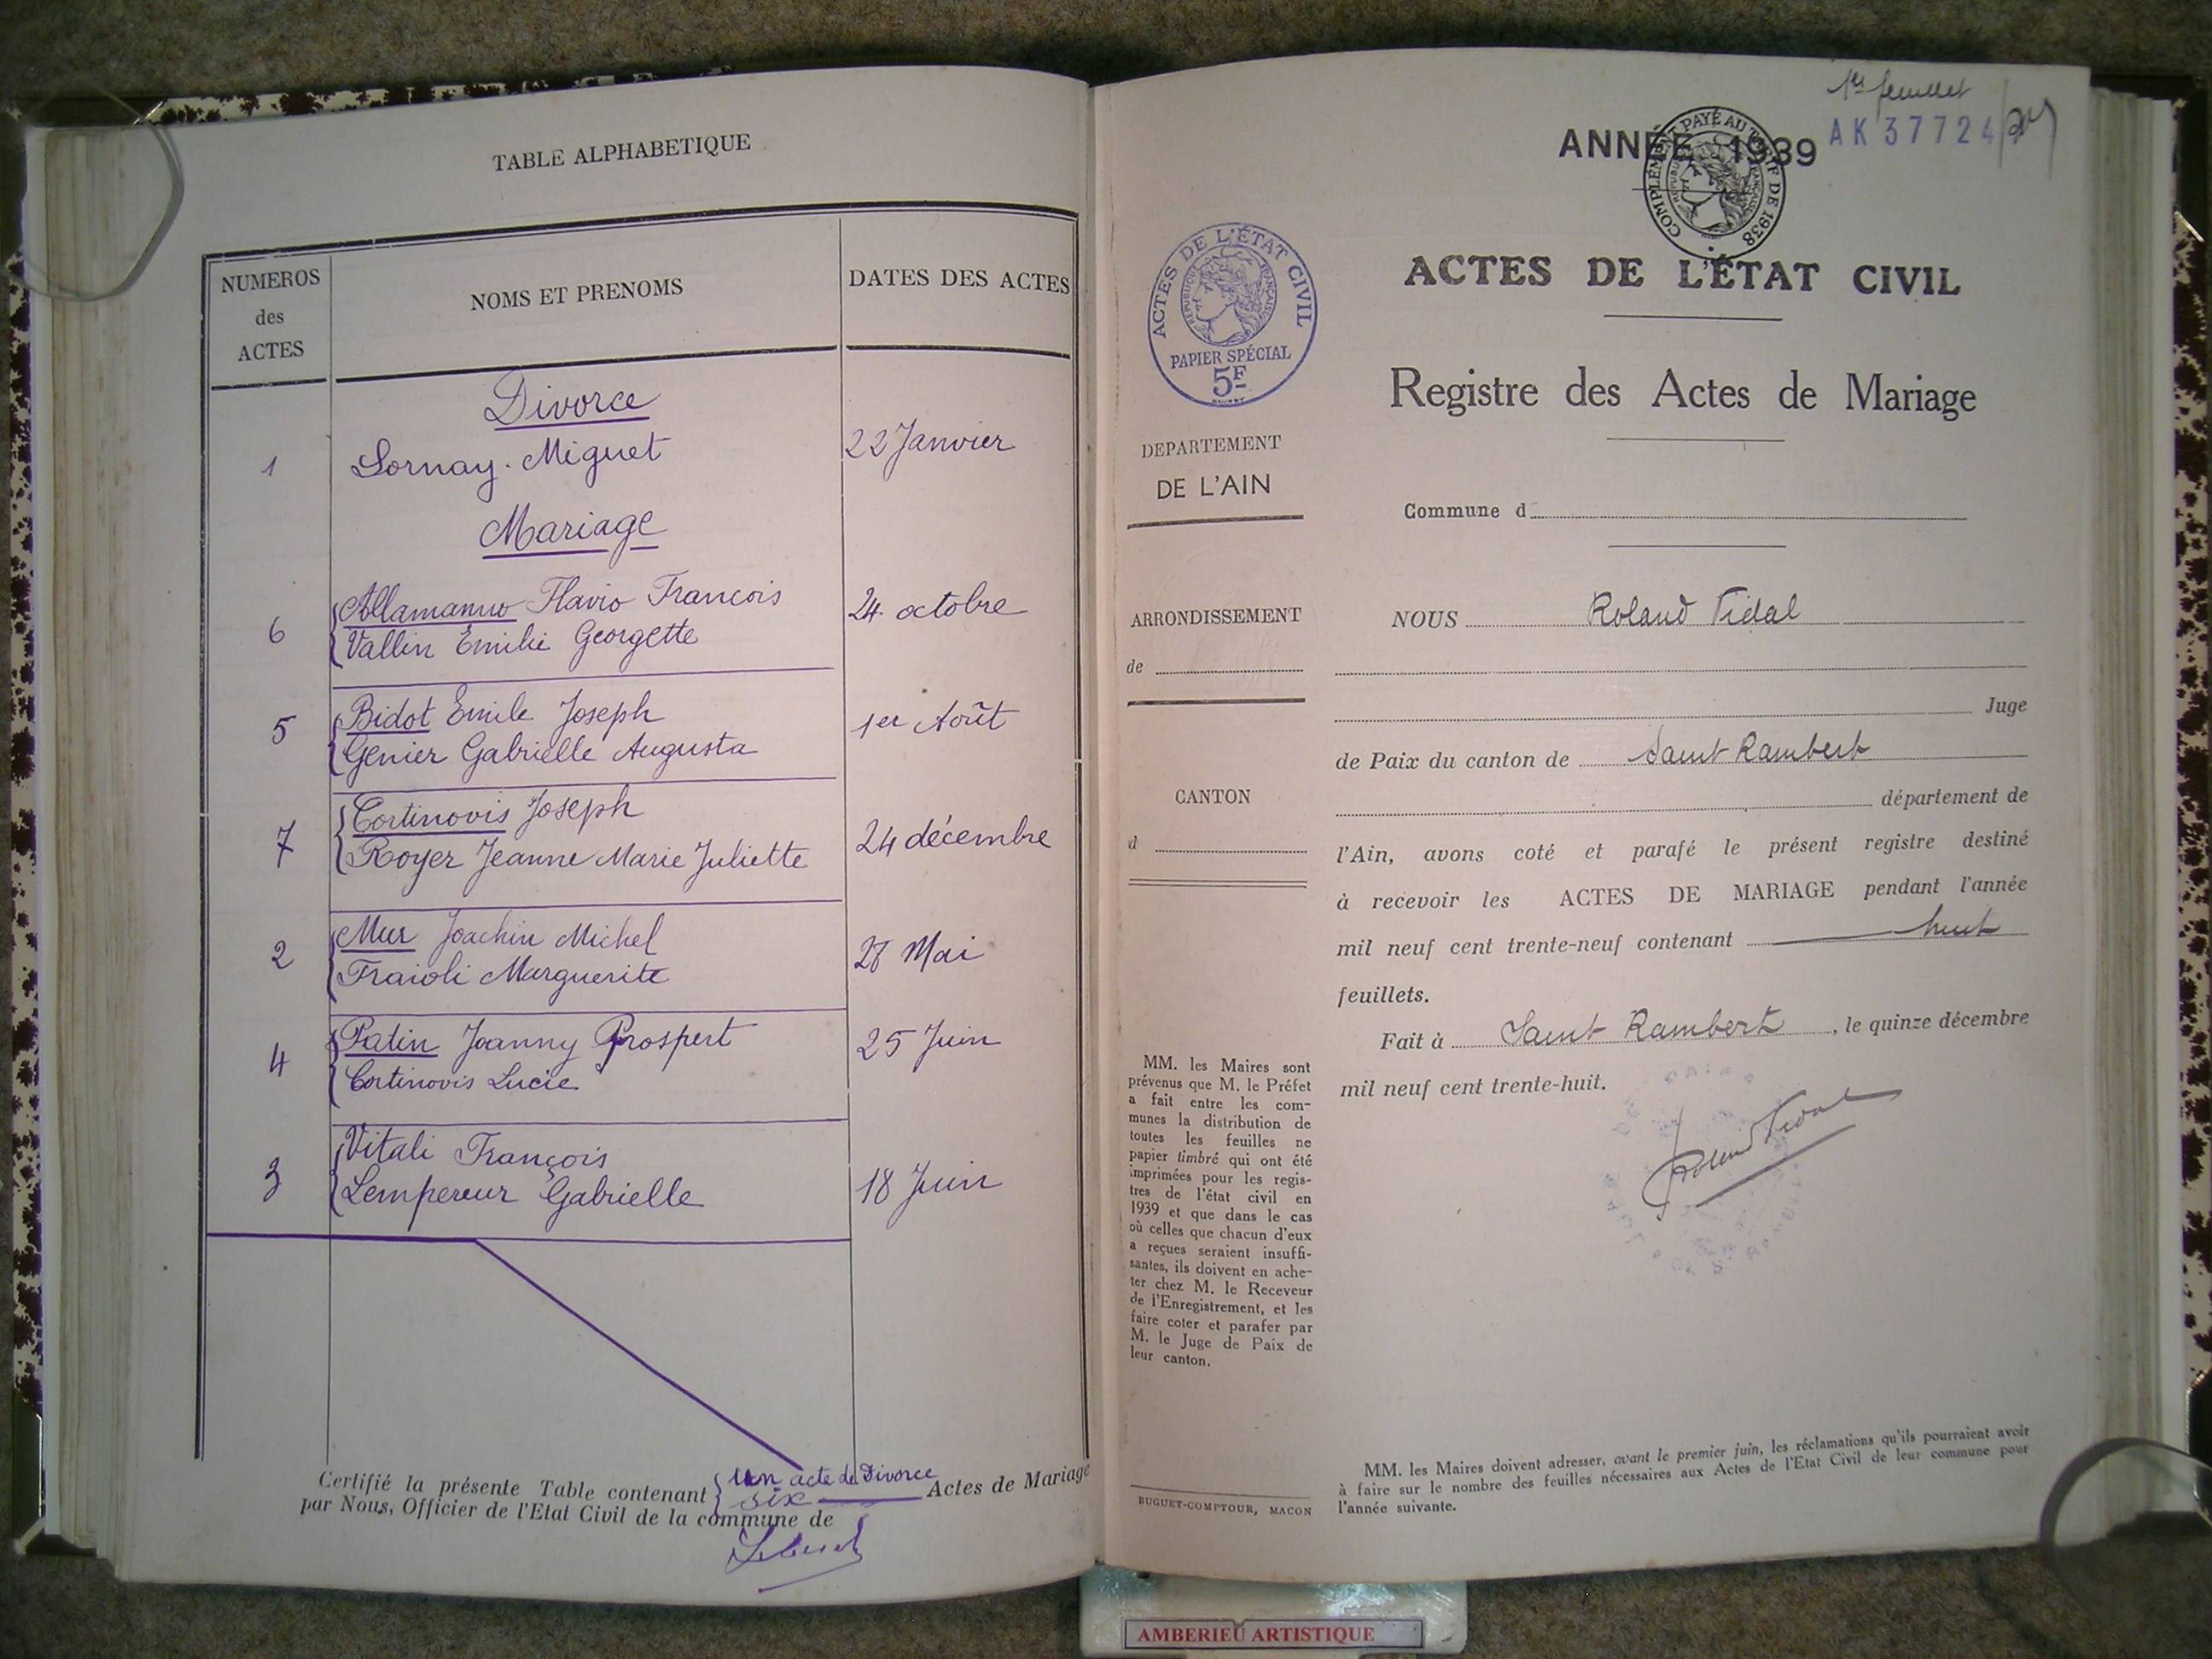 TABLE ALPHABETIQUE
NUMEROS des ACTES
NOMS ET PRENOMS
DATES DES ACTES
Divorce
1 Lornay. Miguet 22 Janvier
Mariage
6 Allamanno Flavio François 24 octobre
Vallin Emilie Georgette
5 Bidot Emile Joseph 1er Août
Genier Gabrielle Augusta
7 Cortinovis Joseph 24 décembre
Royer Jeanne Marie Juliette
2 Mur Joachin Michel 28 Mai
Fraioli Marguerite
4 Patin Joanny Prospert 25 Juin
Cortinovis Lucie
3 Vitali François 18 Juin
Lempereur Gabrielle
Certifié la présente Table contenant un acte de Divorce
six Actes de Mariage
par Nous, Officier de l'Etat Civil de la commune de
1er feuillet
ANNÉE 1939
AK 37724
COMPLÉMENT PAYÉ AU TARIF DE 1938
ACTES DE L'ÉTAT CIVIL
RÉPUBLIQUE FRANÇAISE
PAPIER SPÉCIAL
5F
ACTES DE L'ÉTAT CIVIL
Registre des Actes de Mariage
DEPARTEMENT
DE L'AIN
Commune d
ARRONDISSEMENT
de
CANTON
d
NOUS Roland Vidal
Juge
de Paix du canton de Saint Rambert
département de
l'Ain, avons coté et parafé le présent registre destiné
à recevoir les ACTES DE MARIAGE pendant l'année
mil neuf cent trente-neuf contenant huit
feuillets.
Fait à Saint Rambert, le quinze décembre
mil neuf cent trente-huit.
Roland Vidal
MM. les Maires sont
prévenus que M. le Préfet
a fait entre les com-
munes la distribution de
toutes les feuilles ne
papier timbré qui ont été
imprimées pour les regis-
tres de l'état civil en
1939 et que dans le cas
où celles que chacun d'eux
a reçues seraient insuffi-
santes, ils doivent en ache-
ter chez M. le Receveur
de l'Enregistrement, et les
faire coter et parafer par
M. le Juge de Paix de
leur canton.
BUGUET-COMPTOUR, MACON
MM. les Maires doivent adresser, avant le premier juin, les réclamations qu'ils pourraient avoir
à faire sur le nombre des feuilles nécessaires aux Actes de l'Etat Civil de leur commune pour
l'année suivante.
AMBERIEU ARTISTIQUE